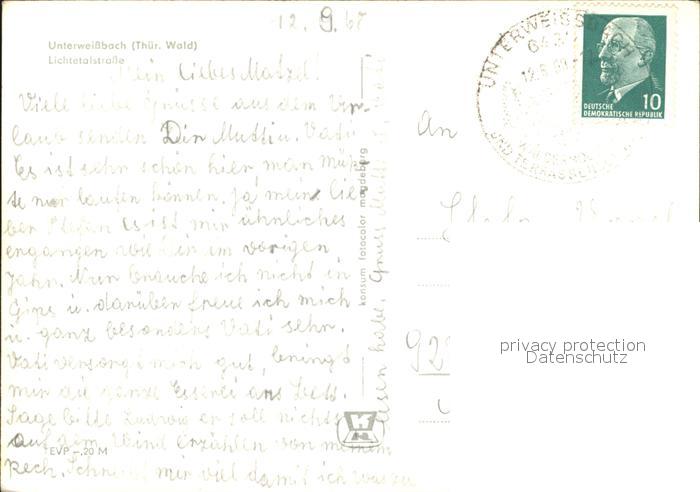 12.9.68
Unterweißbach (Thür. Wald)
Lichtetalstraße
Mein liebes Matzel!
Viele liebe Grüsse aus dem Ur-
laub senden Dir Mutti u. Vati
Es ist sehr schön hier man müß
te nur laufen können. Ja mein lie
ber Stefan es ist mir ähnliches
ergangen wie Dir im vorigen
Jahr. Nur brauche ich nicht in
Gips u. darüber freue ich mich
u. ganz besonders Vati sehr.
Vati versorgt mich gut, bringt
mir die ganze Esserei ans Bett.
Sage bitte Ludwig er soll nichts
auf dem Wind erzählen von meinem
Pech. Schreibt mir viel damit ich was zu
lesen habe. Gruss Mutti
EVP -,20 M
konsum fotocolor magdeburg
UNTERWEISSB
643
12.9.68
UND TERRASSEN
DEUTSCHE
DEMOKRATISCHE REPUBLIK
10
An
92
privacy protection
Datenschutz